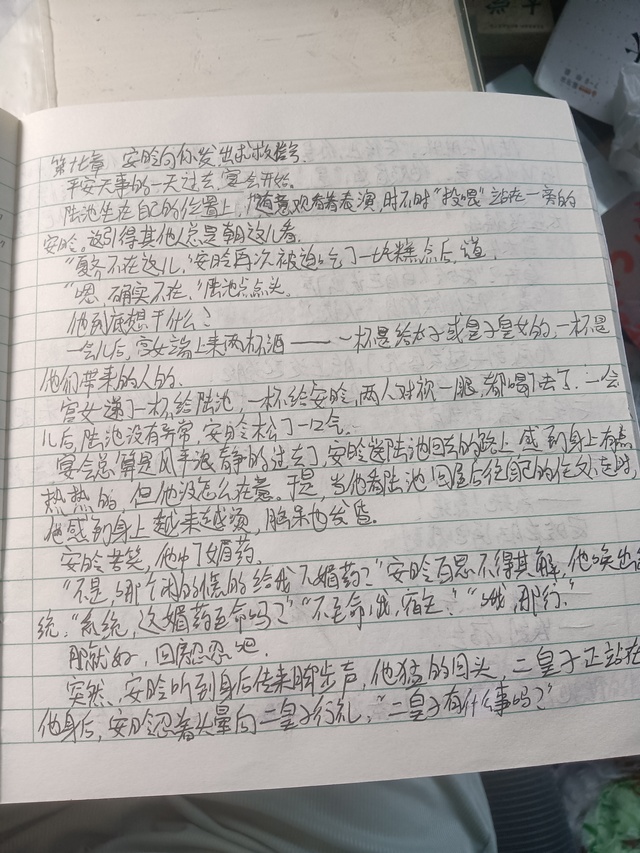 第十七章 安昤向你发出求救信号.
平安无事的一天过去,宴会开始。
陆池坐在自己的位置上,随意观看着表演,时不时“投喂”站在一旁的
安昤。这引得其他人总是朝这儿看。
不在这儿,”安昤再次被迫吃了一块糕点后,道.
“嗯,确实不在,”陆池点点头。
他到底想干什么?
一会儿后,宫女端上来两杯酒——一杯是给太子或皇子皇女的,一杯是
他们带来的人的.
宫女递了一杯给陆池,一杯给安昤,两人对视一眼,都喝下去了.一会
儿后,陆池没有异常,安昤松了一口气.
宴会总算是风平浪静的过去了,安昤送陆池回去的路上,感到身上有点
热热的,但他没怎么在意。于是,当他看陆池回屋后往自己的住处走时,
他感到身上越来越烫,脑呆也发昏.
安昤苦笑,他中了媚药.
“不是,哪个闲的慌的给我下媚药?”安昤百思不得其解,他唤出
统,“系统,这媚药致命吗?”“不致命哦,宿主.”“哦,那行.”
那就好,回房忍忍吧.
突然,安昤听到身后传来脚步声,他猛的回头,二皇子正站在
他身后,安昤忍着头晕向二皇子行礼,“二皇子有什么事吗?”